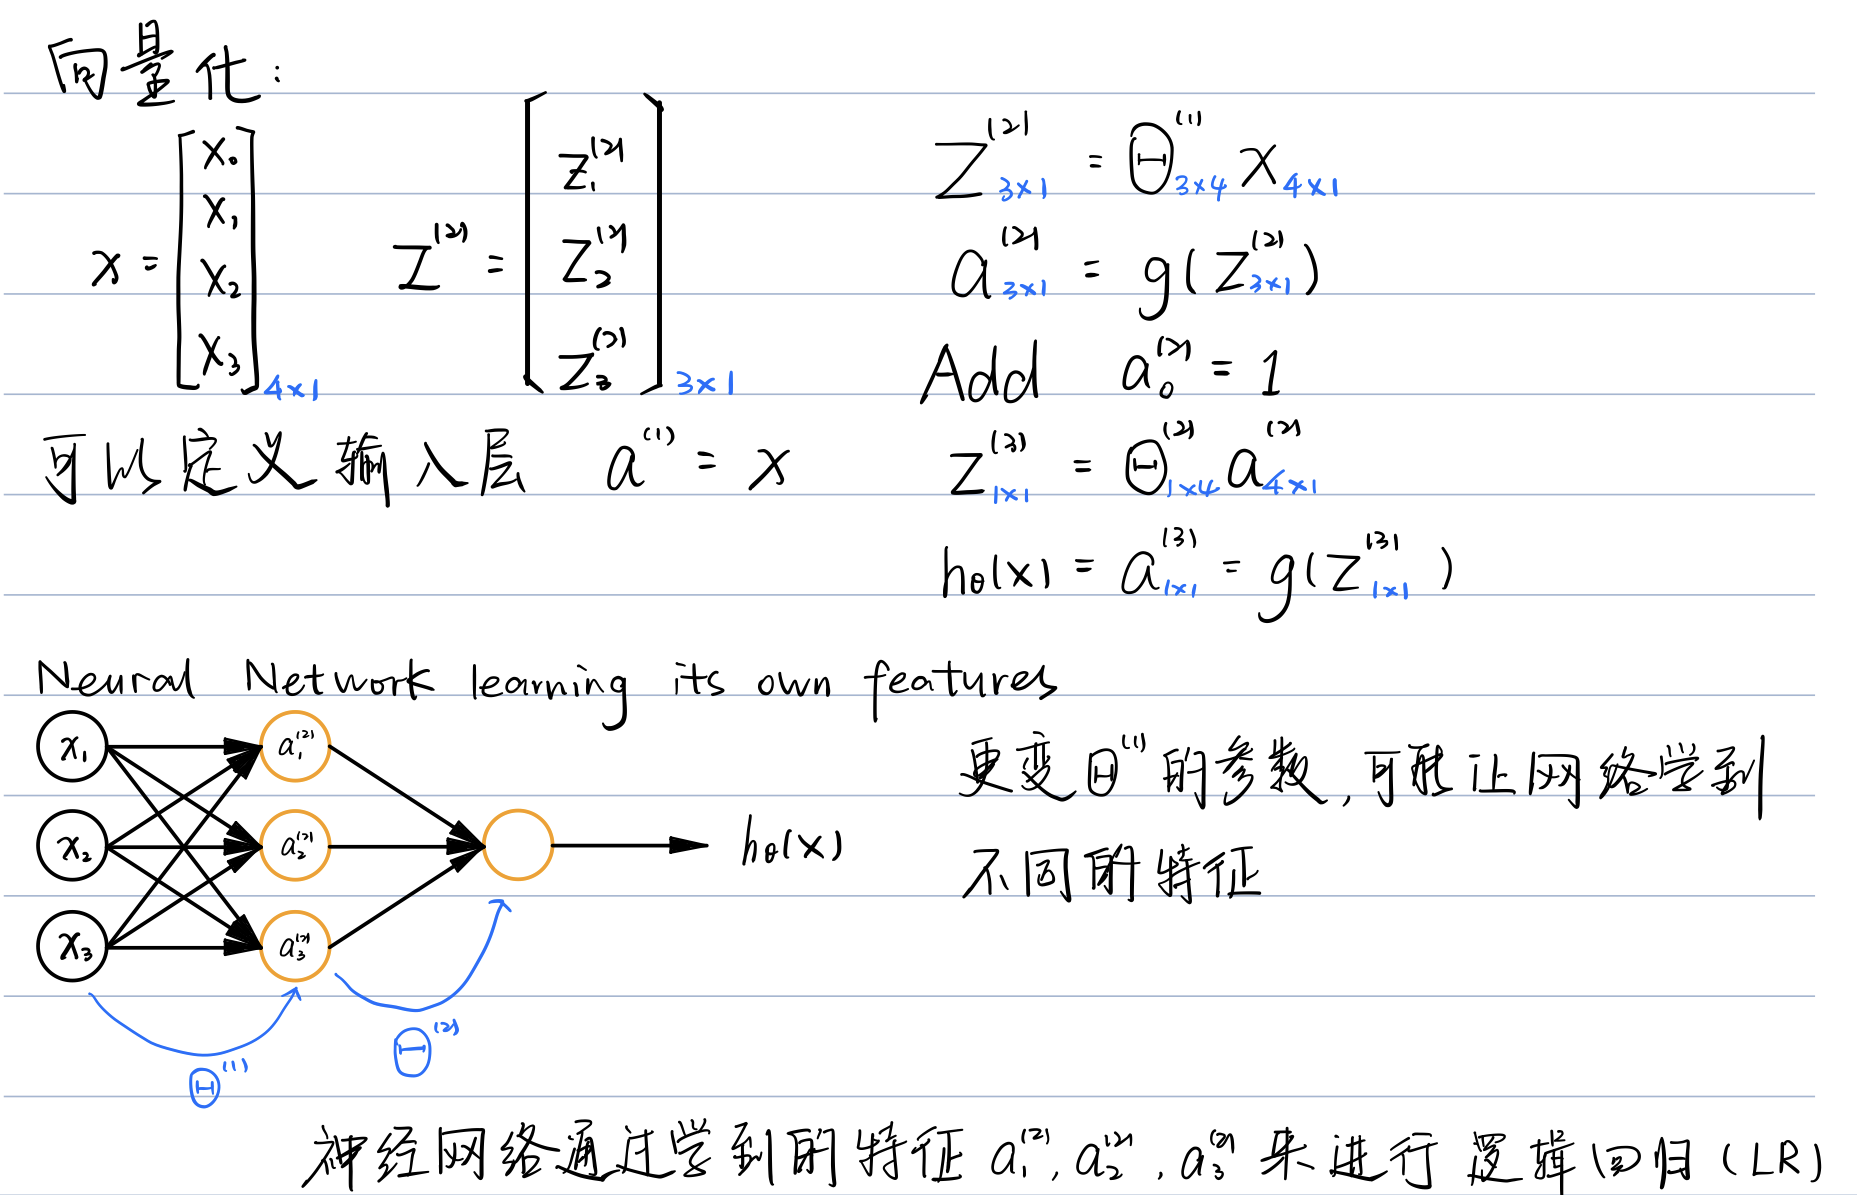 向量化:
x = [x₀ x₁ x₂ x₃]4×1
z⁽²⁾ = [z₁⁽²⁾ z₂⁽²⁾ z₃⁽²⁾]3×1
可以定义输入层 a⁽¹⁾ = x
z⁽²⁾3×1 = Θ⁽¹⁾3×4 x4×1
a⁽²⁾3×1 = g(z⁽²⁾3×1)
Add a₀⁽²⁾ = 1
z⁽³⁾1×1 = Θ⁽²⁾1×4 a⁽²⁾4×1
hθ(x) = a⁽³⁾1×1 = g(z⁽³⁾1×1)
Neural Network learning its own features
x₁ a₁⁽²⁾
x₂ a₂⁽²⁾ hθ(x)
x₃ a₃⁽²⁾
Θ⁽¹⁾ Θ⁽²⁾
更变Θ⁽¹⁾的参数,可能让网络学到
不同的特征
神经网络通过学到的特征 a₁⁽²⁾, a₂⁽²⁾, a₃⁽²⁾ 来进行逻辑回归(LR)